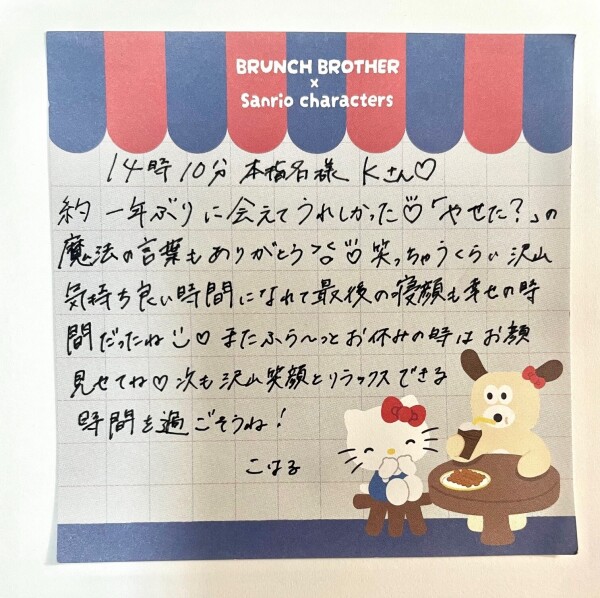 BRUNCH BROTHER
×
Sanrio characters
14時10分 本指名様 Kさん♡
約一年ぶりに会えてうれしかった♡「やせた?」の
魔法の言葉もありがとう♡笑っちゃうくらい沢山
気持ち良い時間になれて最後の寝顔も幸せの時
間だったね♡またふら〜っとお休みの時はお顔
見せてね♡次も沢山笑顔とリラックスできる
時間を過ごそうね!
こはる